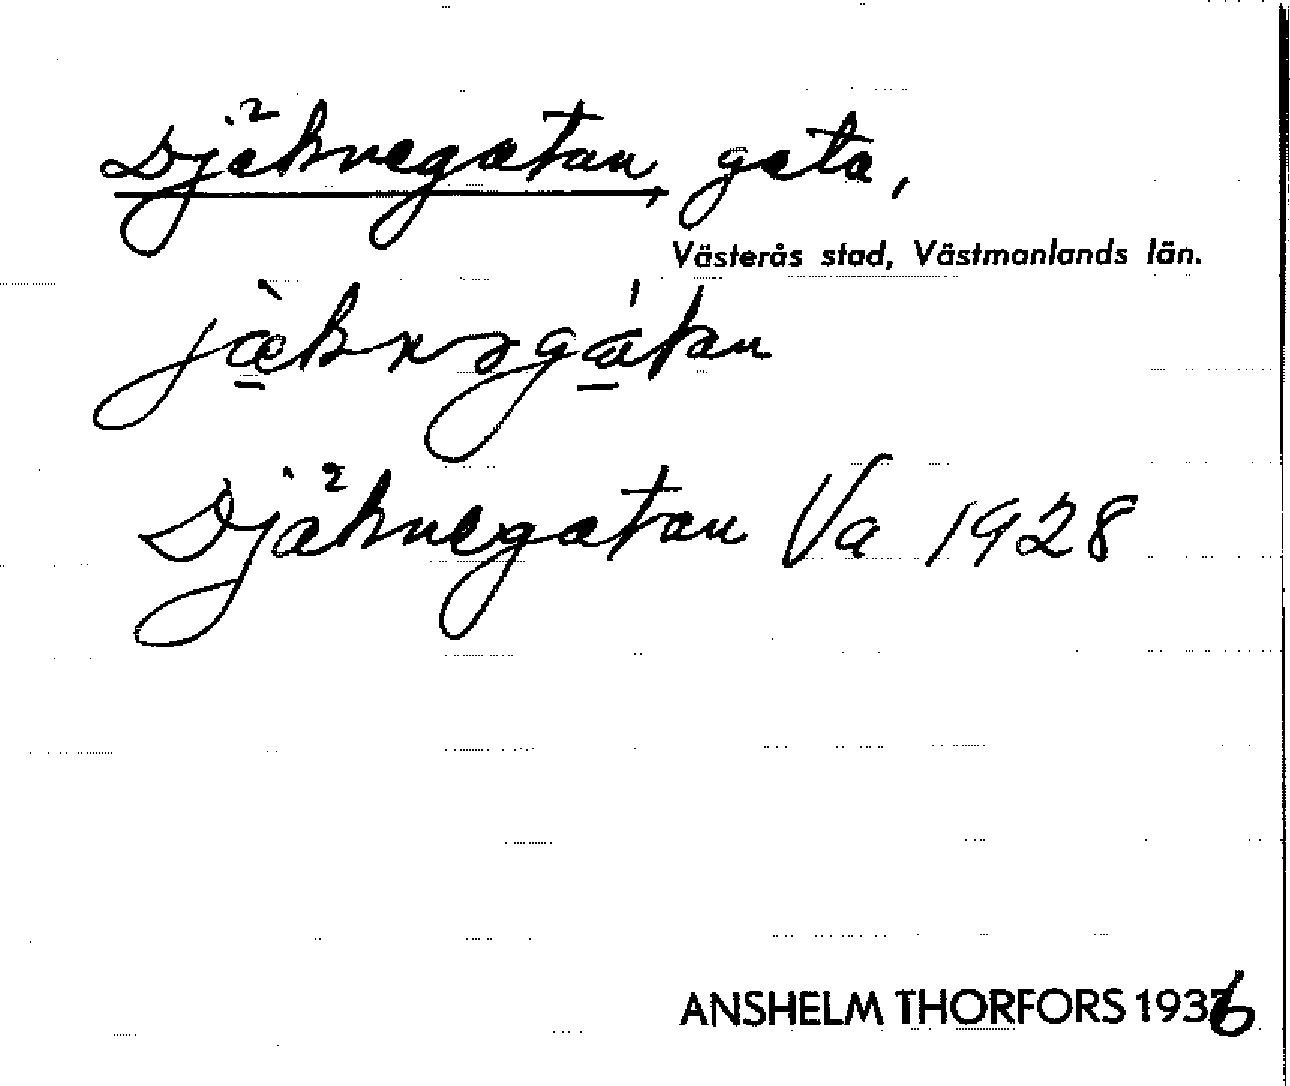 Djäknegatan, gata,
Västerås stad, Västmanlands län.
jæ̀knəgátan
Djäknegatan Va 1928
ANSHELM THORFORS 1936